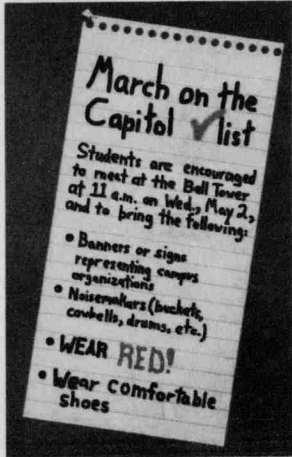 March on the
Capitol ✓list
Students are encouraged
to meet at the Bell Tower
at 11 a.m. on Wed., May 2,
and to bring the following:
• Banners or signs
representing campus
organizations
• Noisemakers (buckets,
cowbells, drums, etc.)
• WEAR RED!
• Wear comfortable
shoes